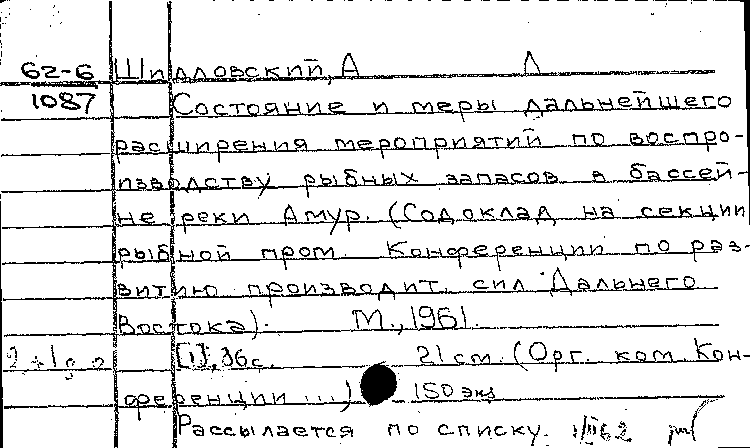 62-6 Шидловский, А Л
1087 Состояние и меры дальнейшего
расширения мероприятий по воспро-
изводству рыбных запасов в бассей-
не реки Амур. (Содоклад на секции
рыбной пром. Конференции по раз-
витию производит. сил Дальнего
Востока). М., 1961.
[1], 36 с. 21 см. (Орг. ком. Кон-
ференции ...) 150 экз
Рассылается по списку.